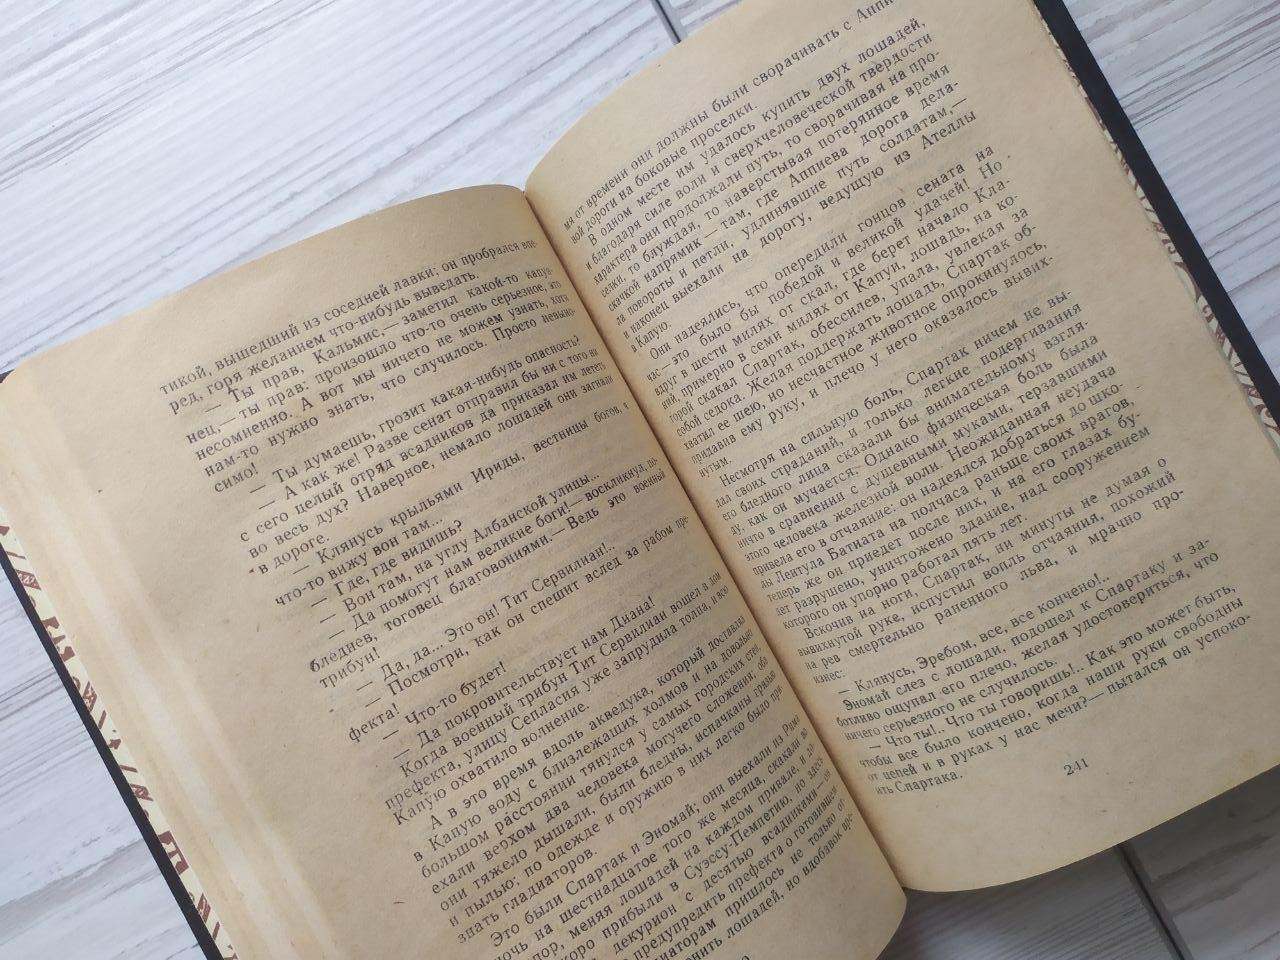 тикой, вышедший из соседней лавки; он пробрался впе-
ред, горя желанием что-нибудь выведать.
— Ты прав, Кальмис,— заметил какой-то капуа-
нец,— ты прав: произошло что-то очень серьезное, это
несомненно. А вот мы ничего не можем узнать, хотя
нам-то нужно знать, что случилось. Просто невыно-
симо!
— Ты думаешь, грозит какая-нибудь опасность?
— А как же! Разве сенат отправил бы ни с того ни
с сего целый отряд всадников да приказал им лететь
во весь дух? Наверное, немало лошадей они загнали
в дороге.
— Клянусь крыльями Ириды, вестницы богов, я
что-то вижу вон там...
— Где, где видишь?
— Вон там, на углу Албанской улицы...
— Да помогут нам великие боги!— воскликнул, по-
бледнев, торговец благовониями.— Ведь это военный
трибун!
— Да, да... Это он! Тит Сервилиан!..
— Посмотри, как он спешит вслед за рабом пре-
фекта!
— Что-то будет!
— Да покровительствует нам Диана!
Когда военный трибун Тит Сервилиан вошел в дом
префекта, улицу Сепласия уже запрудила толпа, и всю
Капую охватило волнение.
А в это время вдоль акведука, который доставлял
в Капую воду с близлежащих холмов и на довольно
большом расстоянии тянулся у самых городских стен,
ехали верхом два человека могучего сложения; оба
они тяжело дышали, были бледны, испачканы грязью
и пылью; по одежде и оружию в них легко было при-
знать гладиаторов.
Это были Спартак и Эномай; они выехали из Рима
ночь на шестнадцатое того же месяца, скакали во
пор, меняя лошадей на каждом привале, и
скоро прибыли в Суэссу-Пометию, но здесь
декурион с десятью всадниками—
предупредить префекта о готовившем
диаторам пришлось не только от
менить лошадей, но вдобавок вре-
мя от времени они должны были сворачивать с Аппие-
вой дороги на боковые проселки.
В одном месте им удалось купить двух лошадей,
и благодаря силе воли и сверхчеловеческой твердости
характера они продолжали путь, то сворачивая на про-
селки, то блуждая, то наверстывая потерянное время
скачкой напрямик — там, где Аппиева дорога дела-
ла повороты и петли, удлинявшие путь солдатам,—
и наконец выехали на дорогу, ведущую из Ателлы
в Капую.
Они надеялись, что опередили гонцов сената на
час — это было бы победой и великой удачей! Но
вдруг в шести милях от скал, где берет начало Кла-
ний, примерно в семи милях от Капуи, лошадь, на ко-
торой скакал Спартак, обессилев, упала, увлекая за
собой седока. Желая поддержать лошадь, Спартак об-
хватил ее шею, но несчастное животное опрокинулось,
придавив ему руку, и плечо у него оказалось вывих-
нутым.
Несмотря на сильную боль, Спартак ничем не вы-
дал своих страданий, и только легкие подергивания
его бледного лица сказали бы внимательному взгля-
ду, как он мучается. Однако физическая боль была
ничто в сравнении с душевными муками, терзавшими
этого человека железной воли. Неожиданная неудача
привела его в отчаяние: он надеялся добраться до шко-
лы Лентула Батиата на полчаса раньше своих врагов,
теперь же он приедет после них, и на его глазах бу-
дет разрушено, уничтожено здание, над сооружением
которого он упорно работал пять лет.
Вскочив на ноги, Спартак, ни минуты не думая о
вывихнутой руке, испустил вопль отчаяния, похожий
на рев смертельно раненного льва, и мрачно про-
изнес:
— Клянусь Эребом, все, все кончено!..
Эномай слез с лошади, подошел к Спартаку и за-
ботливо ощупал его плечо, желая удостовериться, что
ничего серьезного не случилось.
— Что ты!.. Что ты говоришь!.. Как это может быть,
чтобы все было кончено, когда наши руки свободны
от цепей и в руках у нас мечи?— пытался он успоко-
ить Спартака.
241